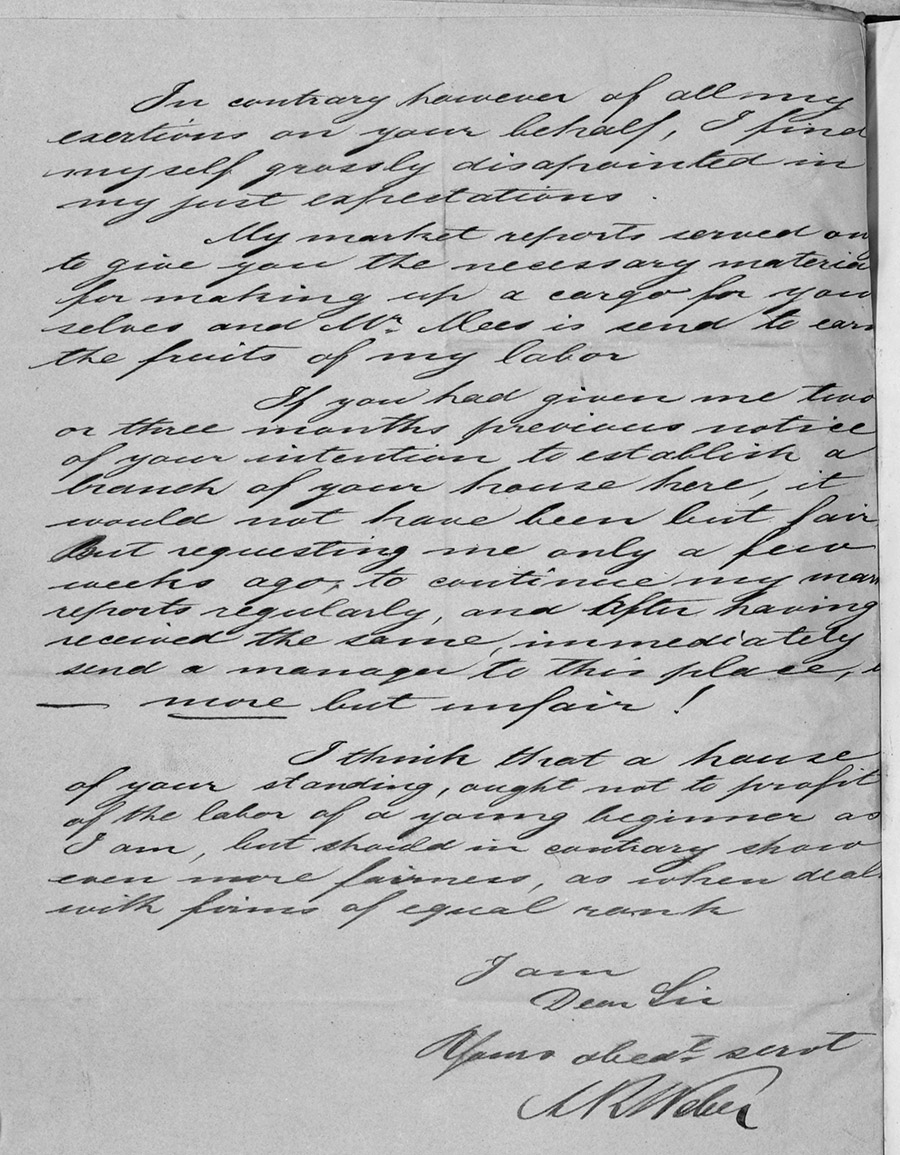 In contrary however of all my
exertions on your behalf, I find
myself grossly disapointed in
my just expectations.
My market reports served on
to give you the necessary materia
for making up a cargo for you
selves and Mr. Mees is send to earn
the fruits of my labor
If you had given me two
or three months previous notice
of your intention to establish a
branch of your house here, it
would not have been but fair
But requesting me only a few
weeks ago, to continue my mar
reports regularly, and after having
received the same, immediately
send a manager to this place,
— more but unfair!
I think that a house
of your standing, ought not to profit
of the labor of a young beginner as
I am, but should in contrary show
even more fairness, as when deal
with firms of equal rank
I am
Dear Sir
Yours obedt. servt
Weber